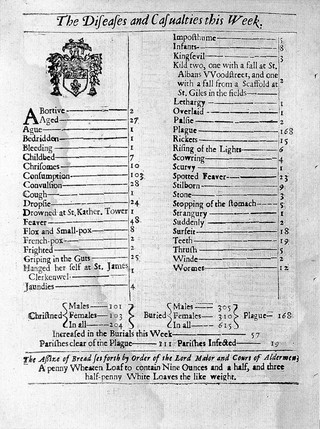 The Diseases and Casualties this Week.
Abortive 2
Aged 27
Ague 1
Bedridden 1
Bleeding 1
Childbed 7
Chrisomes 10
Consumption 103
Convulsion 28
Cough 1
Dropsie 24
Drowned at St. Kather. Tower 1
Feaver 48
Flox and Small-pox 8
French-pox 2
Frighted 2
Griping in the Guts 25
Hanged her self at St. James Clerkenwel 1
Jaundies 4
Imposthume 5
Infants 8
Kingsevil 3
Kild two, one with a fall at St.
Albans VVoodstreet, and one
with a fall from a Scaffold at 2
St. Giles in the fields
Lethargy 1
Overlaid 1
Palsie 2
Plague 168
Rickets 15
Rising of the Lights 6
Scowring 4
Scurvy
Spotted Feaver 23
Stilborn 9
Stone 3
Stopping of the stomach 5
Strangury 1
Suddenly 2
Surfeit 18
Teeth 19
Thrush 5
Winde 2
Wormes 12
Christned Males 101 Females 103 In all 204
Buried Males 305 Females 310 In all 615 Plague 168
Increased in the Burials this Week 57
Parishes clear of the Plague 111 Parishes Infected 19
The Assize of Bread set forth by Order of the Lord Maior and Court of Aldermen,
A penny Wheaten Loaf to contain Nine Ounces and a half, and three
half-penny White Loaves the like weight.